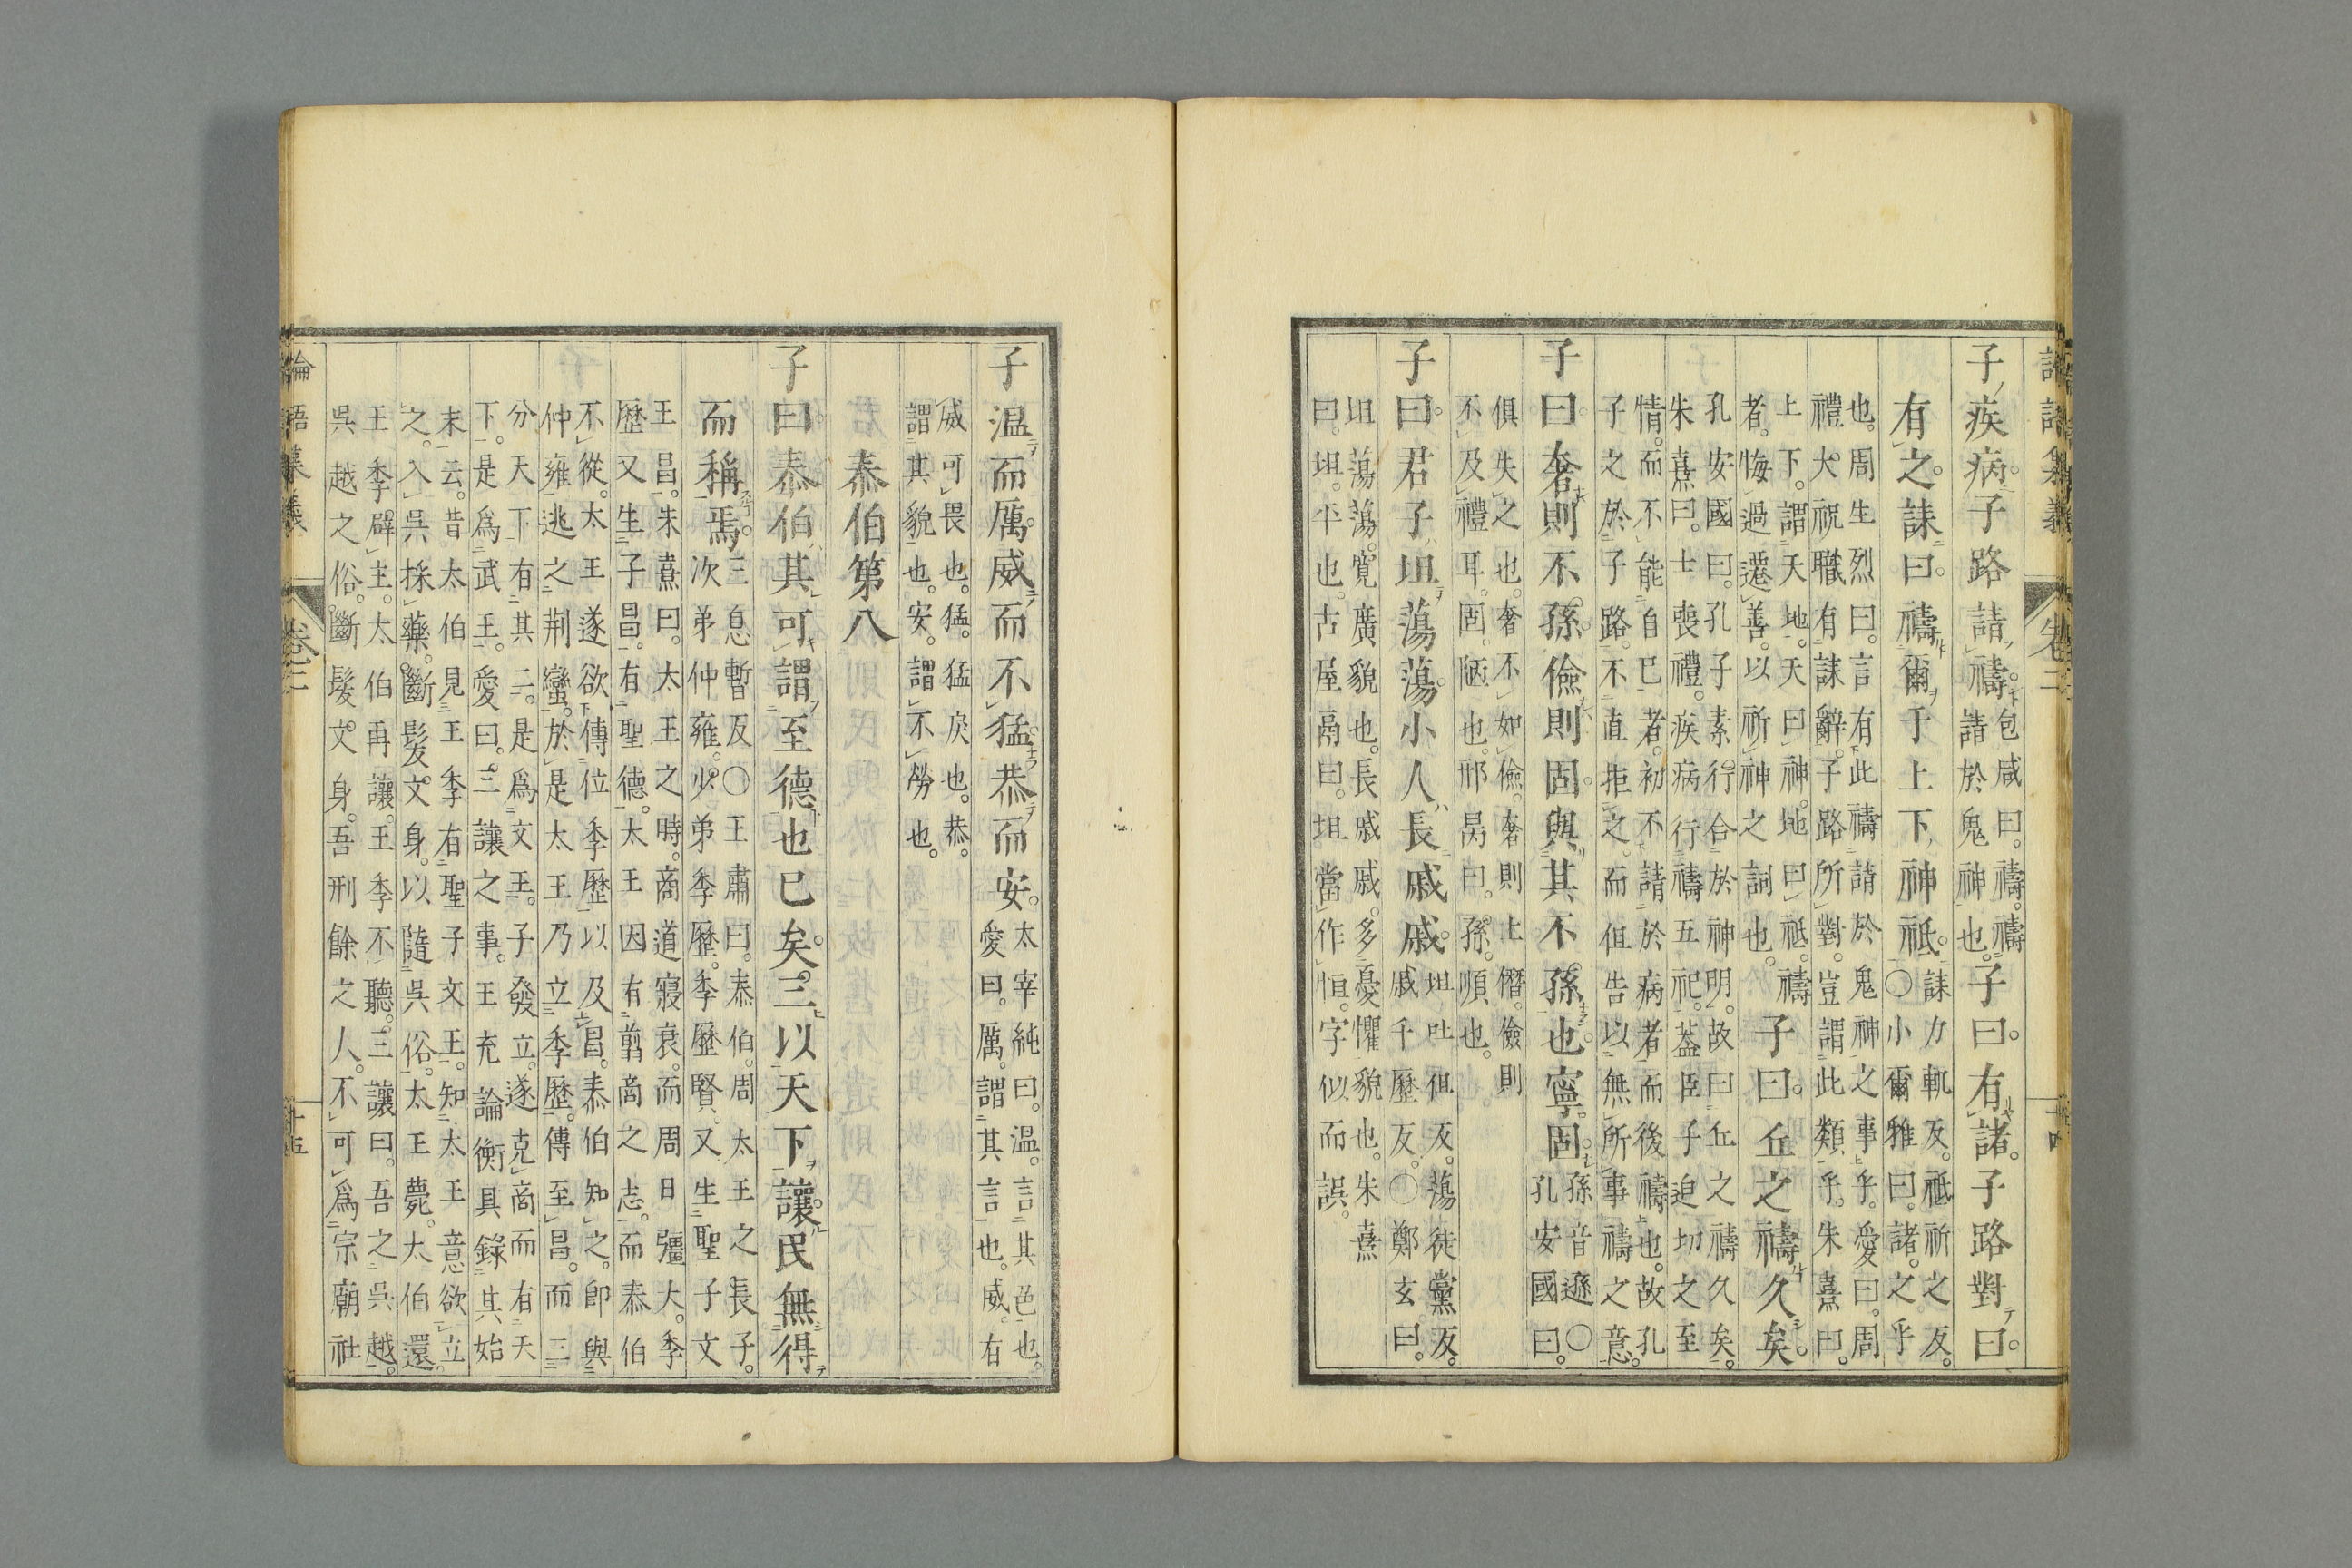 論語集義 卷二 十四
子疾病。子路請禱。包咸曰。禱。禱請於鬼神也。子曰。有諸。子路對曰。
有之。誄曰。禱爾于上下神祇。誄力軌反。祇祈之反。〇小爾雅曰。諸。之乎
也。周生烈曰。言有此禱請於鬼神之事乎。愛曰。周禮。大祝職有誄辭。子路所對。豈謂此類乎。朱熹曰。
上下。謂天地。天曰神。地曰祇。禱者。悔過遷善。以祈神之詞也。子曰。丘之禱久矣。
孔安國曰。孔子素行合於神明。故曰丘之禱久矣。朱熹曰。士喪禮。疾病行禱五祀。蓋臣子迫切之至
情。而不能自已者。初不請於病者而後禱也。故孔子之於子路。不直拒之。而但告以無所事禱之意。
子曰。奢則不孫。儉則固。與其不孫也。寧固。孫音遜〇孔安國曰。
俱失之也。奢不如儉。奢則上僭。儉則不及禮耳。固。陋也。邢昺曰。孫。順也。
子曰。君子坦蕩蕩。小人長戚戚。坦吐但反。蕩徒黨反。戚千歷反。〇鄭玄曰。
坦蕩蕩。寬廣貌也。長戚戚。多憂懼貌也。朱熹曰。坦。平也。古屋鬲曰。坦。當作恒。字似而誤。
子温而厲。威而不猛。恭而安。太宰純曰。温。言其色也。愛曰。厲。謂其言也。威。有
威可畏也。猛。猛戾也。恭。謂其貌也。安。謂不勞也。
泰伯第八
子曰。泰伯其可謂至德也已矣。三以天下讓。民無得
而稱焉。三息暫反〇王肅曰。泰伯。周太王之長子。次弟仲雍。少弟季歷。季歷賢。又生聖子文
王昌。朱熹曰。太王之時。商道寢衰。而周日彊大。季歷又生子昌。有聖德。太王因有翦商之志。而泰伯
不從。太王遂欲傳位季歷以及昌。泰伯知之。即與仲雍逃之荆蠻。於是太王乃立季歷。傳至昌。而三
分天下有其二。是爲文王。子發立。遂克商而有天下。是爲武王。愛曰。三讓之事。王充論衡具錄其始
末云。昔太伯見王季有聖子文王。知太王意欲立之。入吳採藥。斷髮。文身。以隨吳俗。太王薨。太伯還。
王季辟主。太伯再讓。王季不聽。三讓曰。吾之吳越。吳越之俗。斷髮。文身。吾刑餘之人。不可爲宗廟社
論語集義 卷二 十五